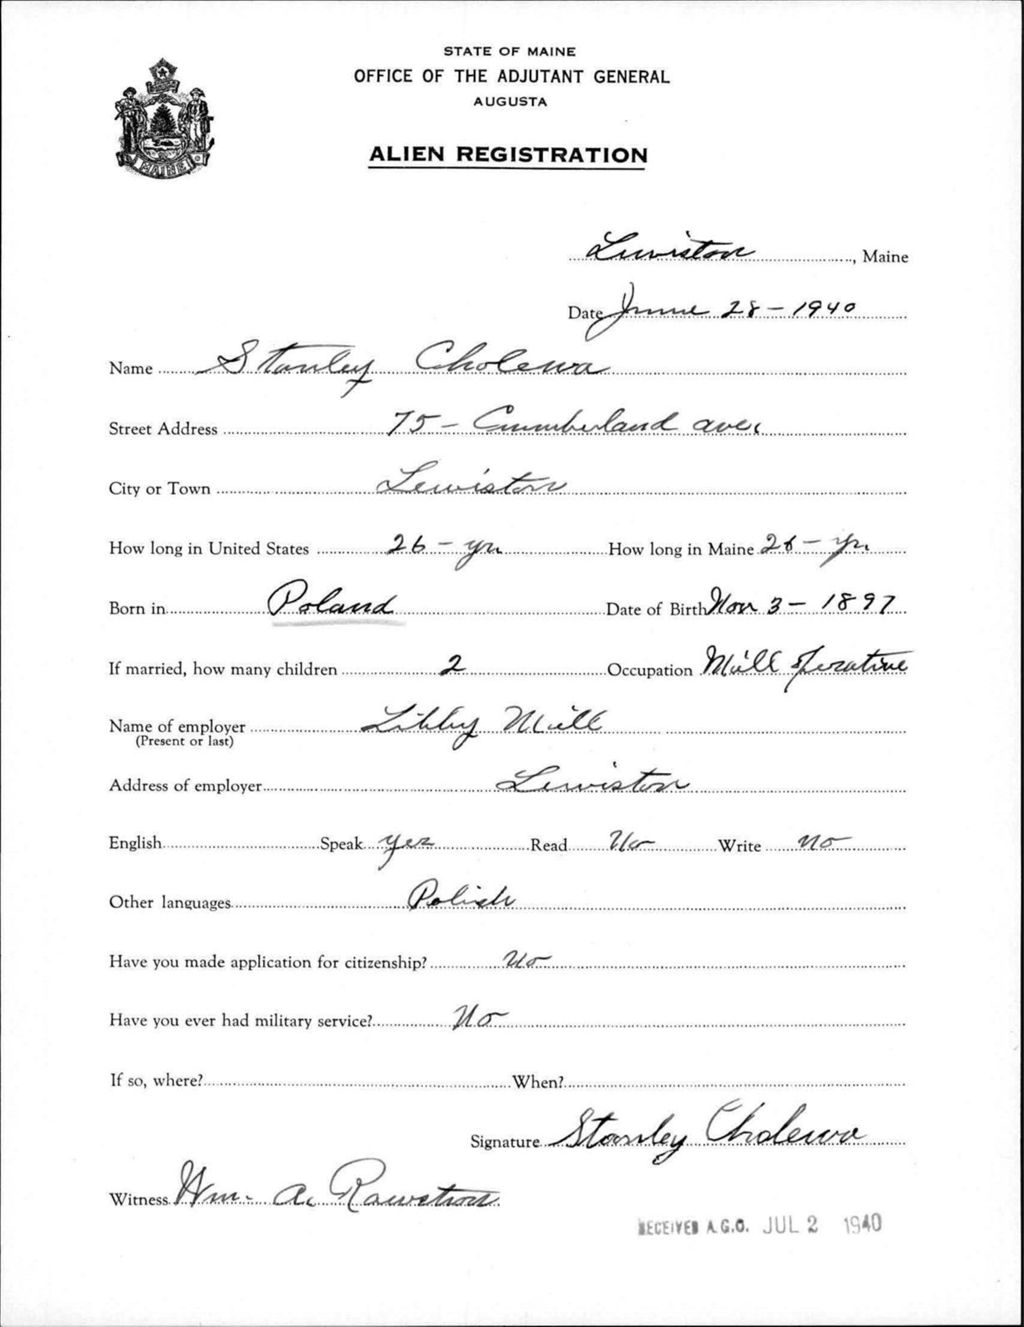 STATE OF MAINE
OFFICE OF THE ADJUTANT GENERAL
AUGUSTA
ALIEN REGISTRATION
MAINE
Lewiston, Maine
Date June 28-1940
Name Stanley Cholewa
Street Address 75- Cumberland ave.
City or Town Lewiston
How long in United States 26-yr. How long in Maine 26-yr.
Born in Poland Date of Birth Nov 3- 1897
If married, how many children 2 Occupation Mill operative
Name of employer Libby Mill
(Present or last)
Address of employer Lewiston
English Speak yes Read No Write no
Other languages Polish
Have you made application for citizenship? No
Have you ever had military service? No
If so, where? When?
Signature Stanley Cholewa
Witness Wm. A. Rawstron
RECEIVED A.G.O. JUL 2 1940